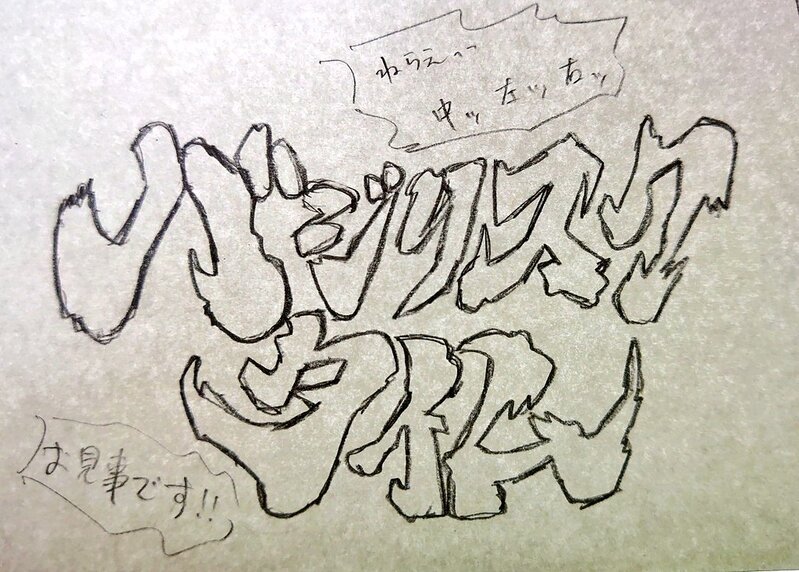 ねらえっ
中ッ 左ッ 右ッ
バジリスク
タイム
お見事です!!